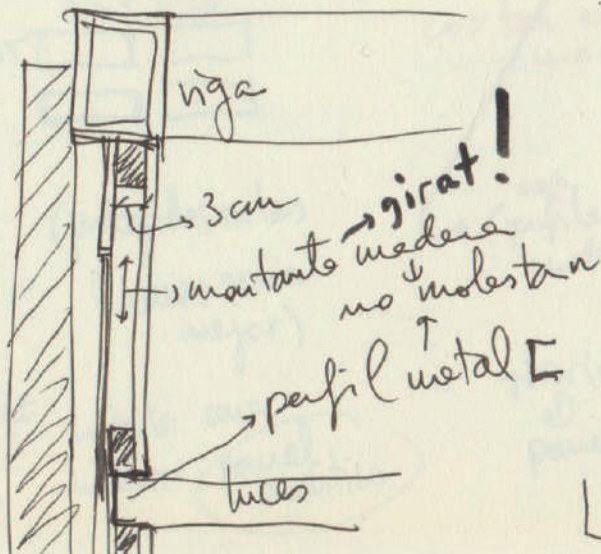 viga
3 cm
girat!
montante madera
no molestan
perfil metal [
luces